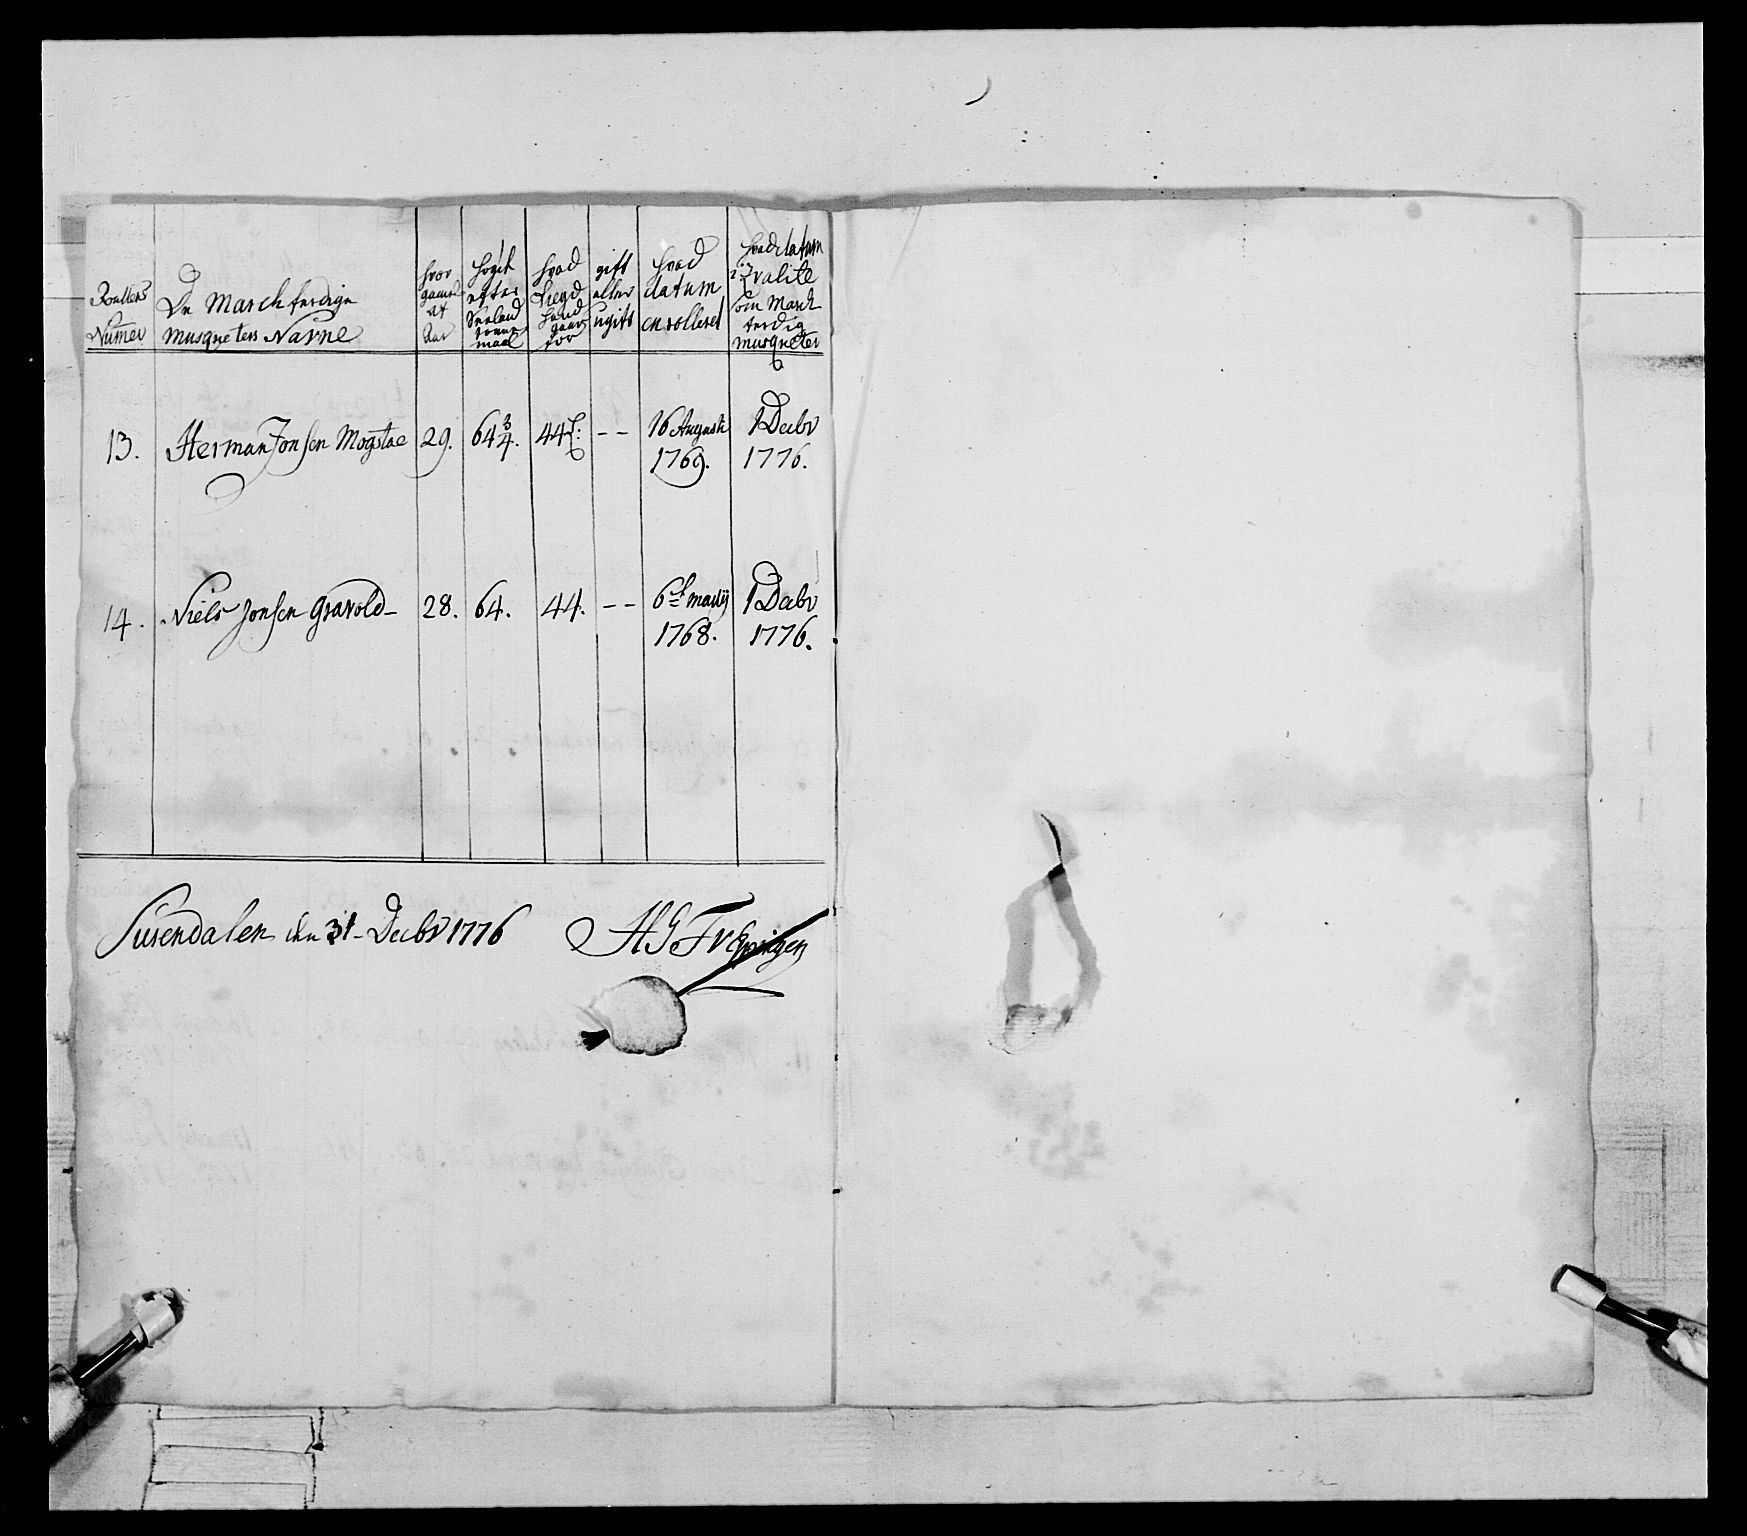 Roullers Numer
De March ferdige musqueters Navne
hvor gamel at Aar
høyde efter Seeland tomme maal
hvad Legd hand gaar for
gift eller ugift
hvad datum enrolleret
hvad datum i qvalite som March ferdig musqueter
13. Herman Jonsen Mogstae 29. 64 3/4. 44 -- 16 Augusti 1769. 1 Decbr 1776.
14. Niels Jonsen Gravold 28. 64. 44. -- 6 Martij 1768. 1 Decbr 1776.
Surendalen den 31 Decbr 1776